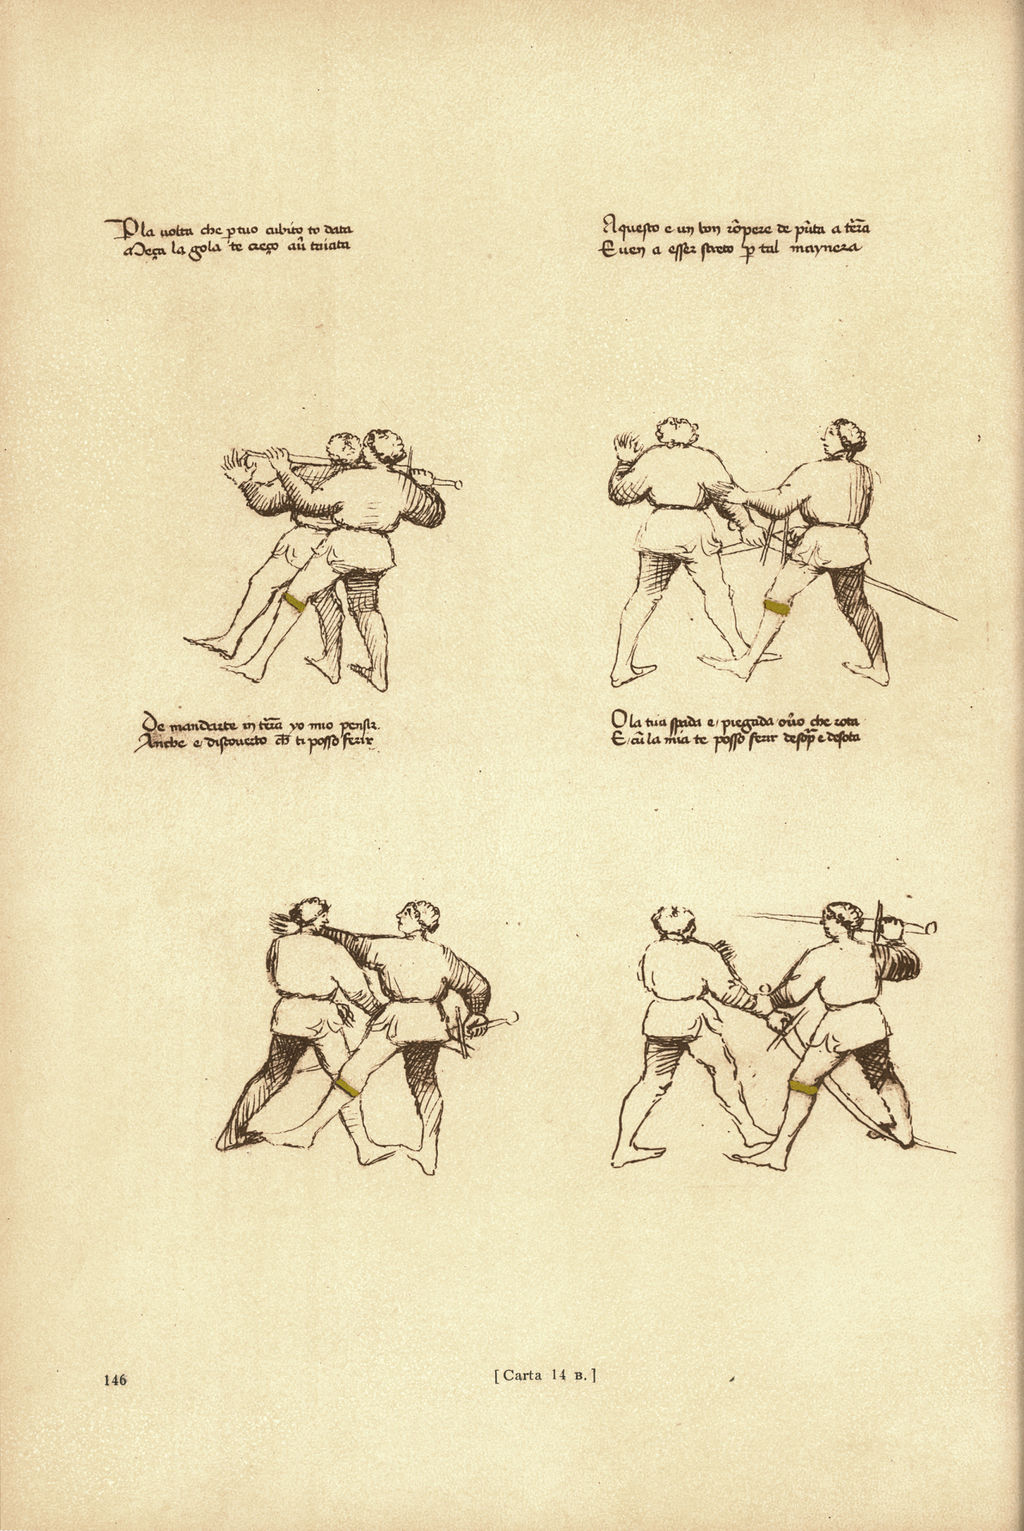 P la volta che p̱ tuo cubito to data
Meça la gola te creço aũ taiata
Aquesto e un bon rõpere de pũta a t̃ra
E uen a esser streto p̱ tal maynera
De mandarte in t̃ra yo mio pensir.
Anche e discouerto ch̃ ti posso ferir
O la tua spada e piegada oũo che rota
E cũ la mia te posso ferir desop̃ e desota
146
[Carta 14 B.]